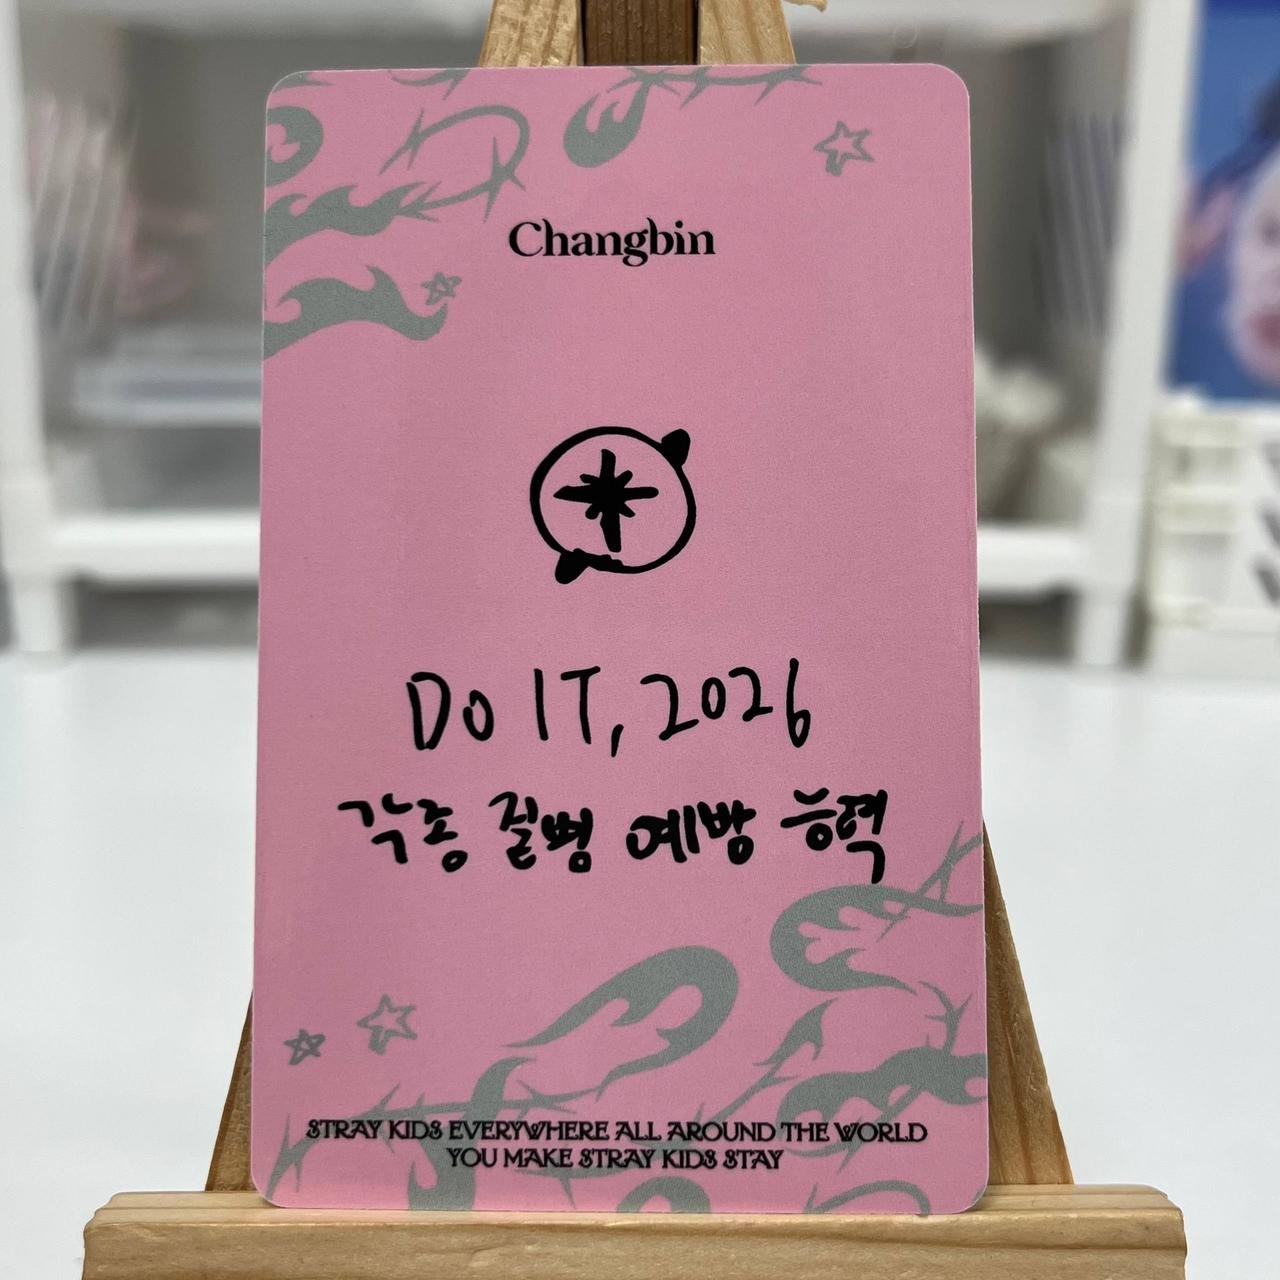 Changbin
DO IT, 2026
각종 질병 예방 능력
STRAY KIDS EVERYWHERE ALL AROUND THE WORLD
YOU MAKE STRAY KIDS STAY